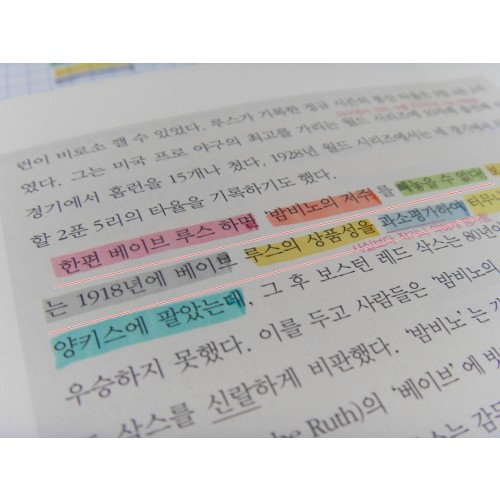 런이 비로소 깰 수 있었다. 루스가 기록한 정규 시즌의 통산
였다. 그는 미국 프로 야구의 최고를 가리는 월드 시리즈에서도
경기에서 홈런을 15개나 쳤다. 1928년 월드 시리즈에서는 네 경기에서
할 2푼 5리의 타율을 기록하기도 했다.
한편 베이브 루스 하면 '밤비노의 저주'를 빼놓을 수 없다
는 1918년에 베이브 루스의 상품성을 과소평가하여
양키스에 팔았는데, 그 후 보스턴 레드 삭스는 80여년
우승하지 못했다. 이를 두고 사람들은 '밤비노의
삭스를 신랄하게 비판했다. '밤비노'는
Ruth)의 '베이브'에